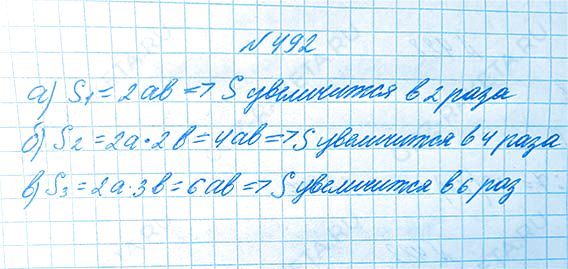 №492
а) S₁ = 2ab => S увеличится в 2 раза
б) S₂ = 2a·2b = 4ab => S увеличится в 4 раза
в) S₃ = 2a·3b = 6ab => S увеличится в 6 раз